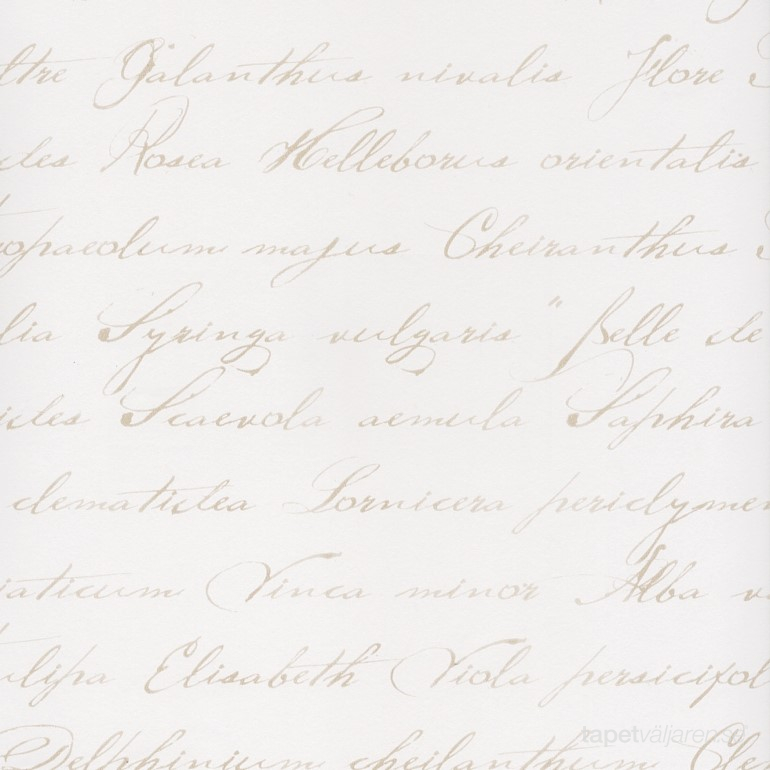 ltre Galanthus nivalis Flore
des Rosea Helleborus orientalis
opaeolum majus Cheiranthus
lia Syringa vulgaris "Belle de
ides Scaevola aemula Saphira
clematidea Lornicera periclymen
iaticum Vinca minor Alba v
ulipa Elisabeth Viola persicifol
Delphinium cheilanthum Clem
tapetväljaren.se